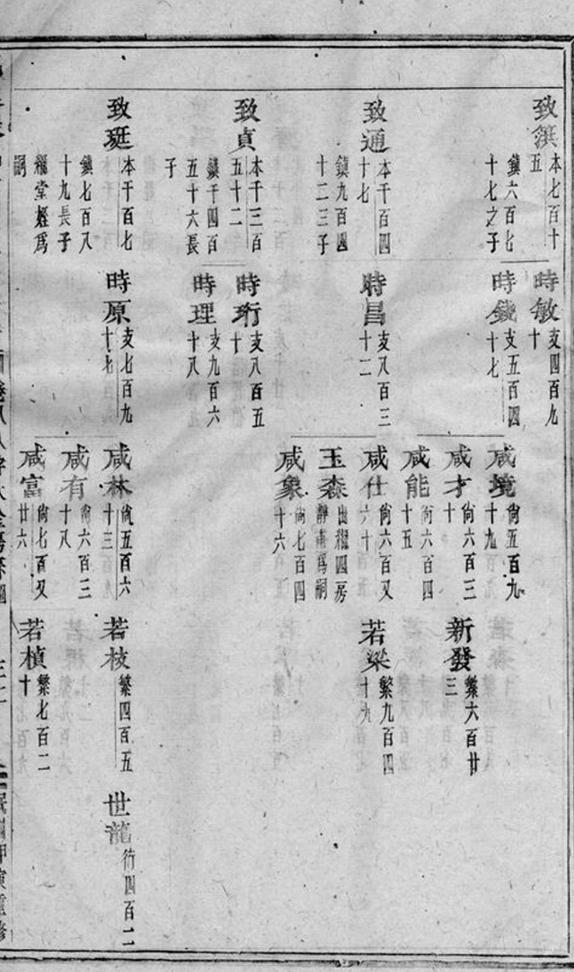 致淇
本七百十
五
鎮六百七
十七之子
致通
本千百四
十七
鎮九百四
十二三子
致貞
本千三百
五十二
鎮千四百
五十六長
子
致珽
本千百七
鎮七百八
十九長子
福堂
爲
嗣
時敏
支四百九
十
時錢
支五百四
十七
時昌
支八百三
十二
時珩
支八百五
十
時理
支九百六
十八
時原
支七百九
十七
咸境
尙五百九
十九
咸才
尙六百三
十
咸能
尙六百四
十五
咸仕
尙六百
六十
玉森
四房
靜甫爲嗣
咸象
尙七百四
十六
咸林
尙五百六
十三
咸有
尙六百三
十八
咸富
尙七百
廿六
新發
繁六百廿
三
若梁
繁九百四
十九
若枝
繁四百五
若楨
繁七百二
十
世龍
衍四百二